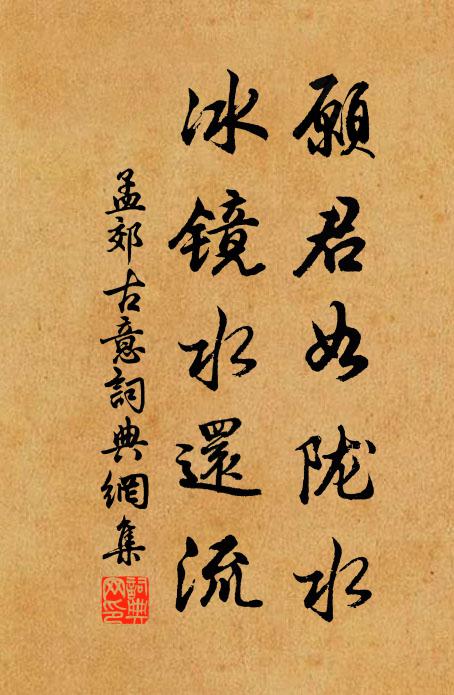 願君如陇水
冰镜水還流
孟郊古意詞典網集
詞典网印